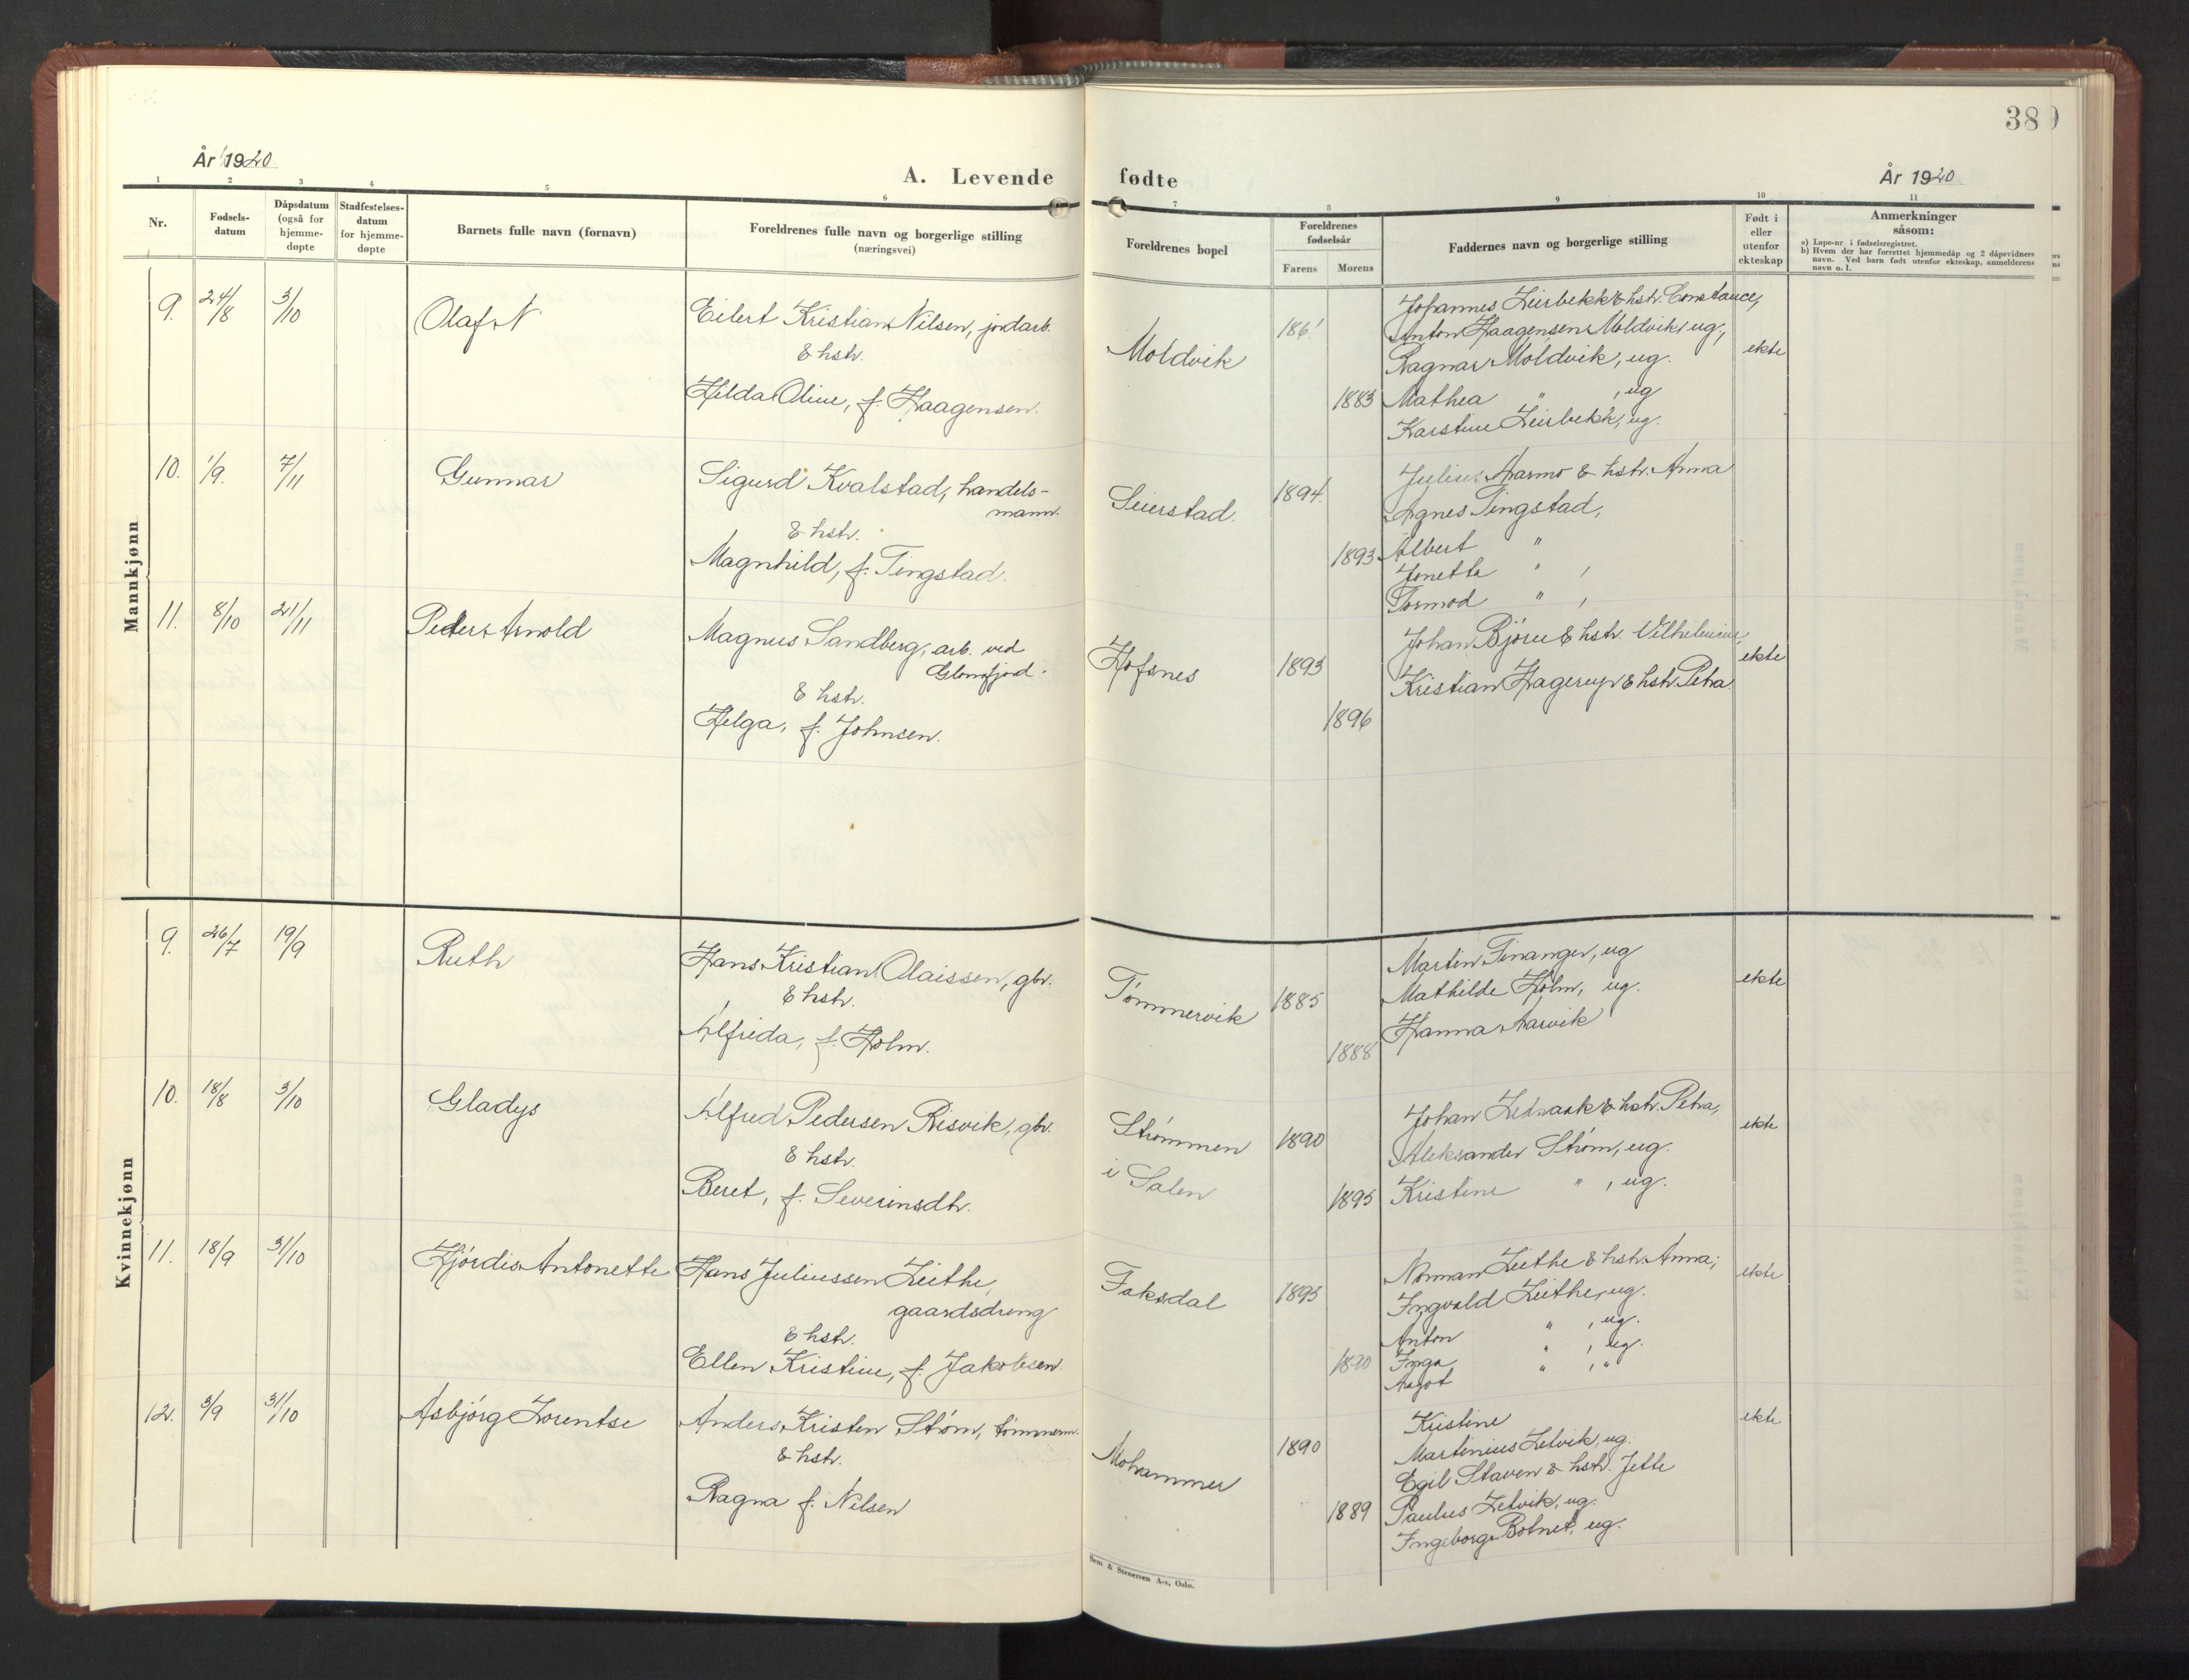 År 1920
A. Levende
1 2 3 4 5 6
Nr.
Fødsels-
datum
Dåpsdatum
(også for
hjemme-
døpte
Stadfestelses-
datum
for hjemme-
døpte
Barnets fulle navn (fornavn)
Foreldrenes fulle navn og borgerlige stilling
(næringsvei)
Mannkjønn
9. 24/8 3/10 Olaf N Eilert Kristian Nilsen, jordarb.
& hstr.
Hilda Oline, f. Haagensen.
10. 1/9. 7/11 Gunnar Sigurd Kvalstad, handels-
mann.
& hstr.
Magnhild, f. Tingstad.
11. 8/10 21/11 Peder Arnold Magnus Sandberg, arb. ved
Glomfjord.
& hstr.
Helga, f. Johnsen.
Kvinnekjønn
9. 26/7 19/9 Ruth Hans Kristian Olaissen, gbr.
& hstr.
Alfrida, f. Holm.
10. 18/8 3/10 Gladys Alfred Pedersen Risvik, gbr.
& hstr.
Beret, f. Severinsdtr.
11. 18/9 31/10 Hjørdis Antonette Hans Juliussen Liithe,
gaardsdreng
& hstr.
Ellen Kristine, f. Jakobsen.
12. 3/9 31/10 Asbjørg Lorentse Anders Kristen Strøm, tømmerm.
& hstr.
Ragna f. Nilsen
389
fødte
År 1920
7 8 9 10 11
Foreldrenes bopel
Foreldrenes
fødselsår
Farens Morens
Faddernes navn og borgerlige stilling
Født i
eller
utenfor
ekteskap
Anmerkninger
såsom:
a) Løpe-nr i fødselsregistret.
b) Hvem der har forrettet hjemmedåp og 2 dåpsvidners
navn. Ved barn født utenfor ekteskap, anmelderens
navn o. l.
Johannes Leirbekk & hstr. Constance,
Moldvik 186 Anton Haagensen Moldvik, ug.,
Ragnar Moldvik, ug. ekte
1883 Mathea " , ug
Karstine Leirbekk, ug.
Julius Aarmo & hstr. Anna
Seierstad. 1894. Agnes Tingstad,
1893 Albert "
Jonette " ,
Tormod " ,
Johan Bjøru & hstr. Vilhelmine, ekte
Hofsnes 1893 Kristian Hagerup & hstr. Petra.
1896
Martin Finanger, ug
Tømmervik 1885 Mathilde Holm, ug. ekte
Hanna Aarvik
1888
Johan Ledsaak & hstr. Petra,
Strømmen 1890 Aleksander Strøm, ug. ekte
i Salen 1895 Kristine " , ug.
Norman Liithe & hstr. Anna;
Faksdal 1895 Ingvald Liithe, ug. ekte
Anton " , ug.
1890 Inga " , ug.
Aagot " , "
Kristine ekte
Mohammer 1890 Martinius Letvik, ug.
Egil Staven & hstr. Jette
1889 Paulus Letvik, ug.
Ingeborg Botnet, ug.
Sem & Stenersen A-s, Oslo.